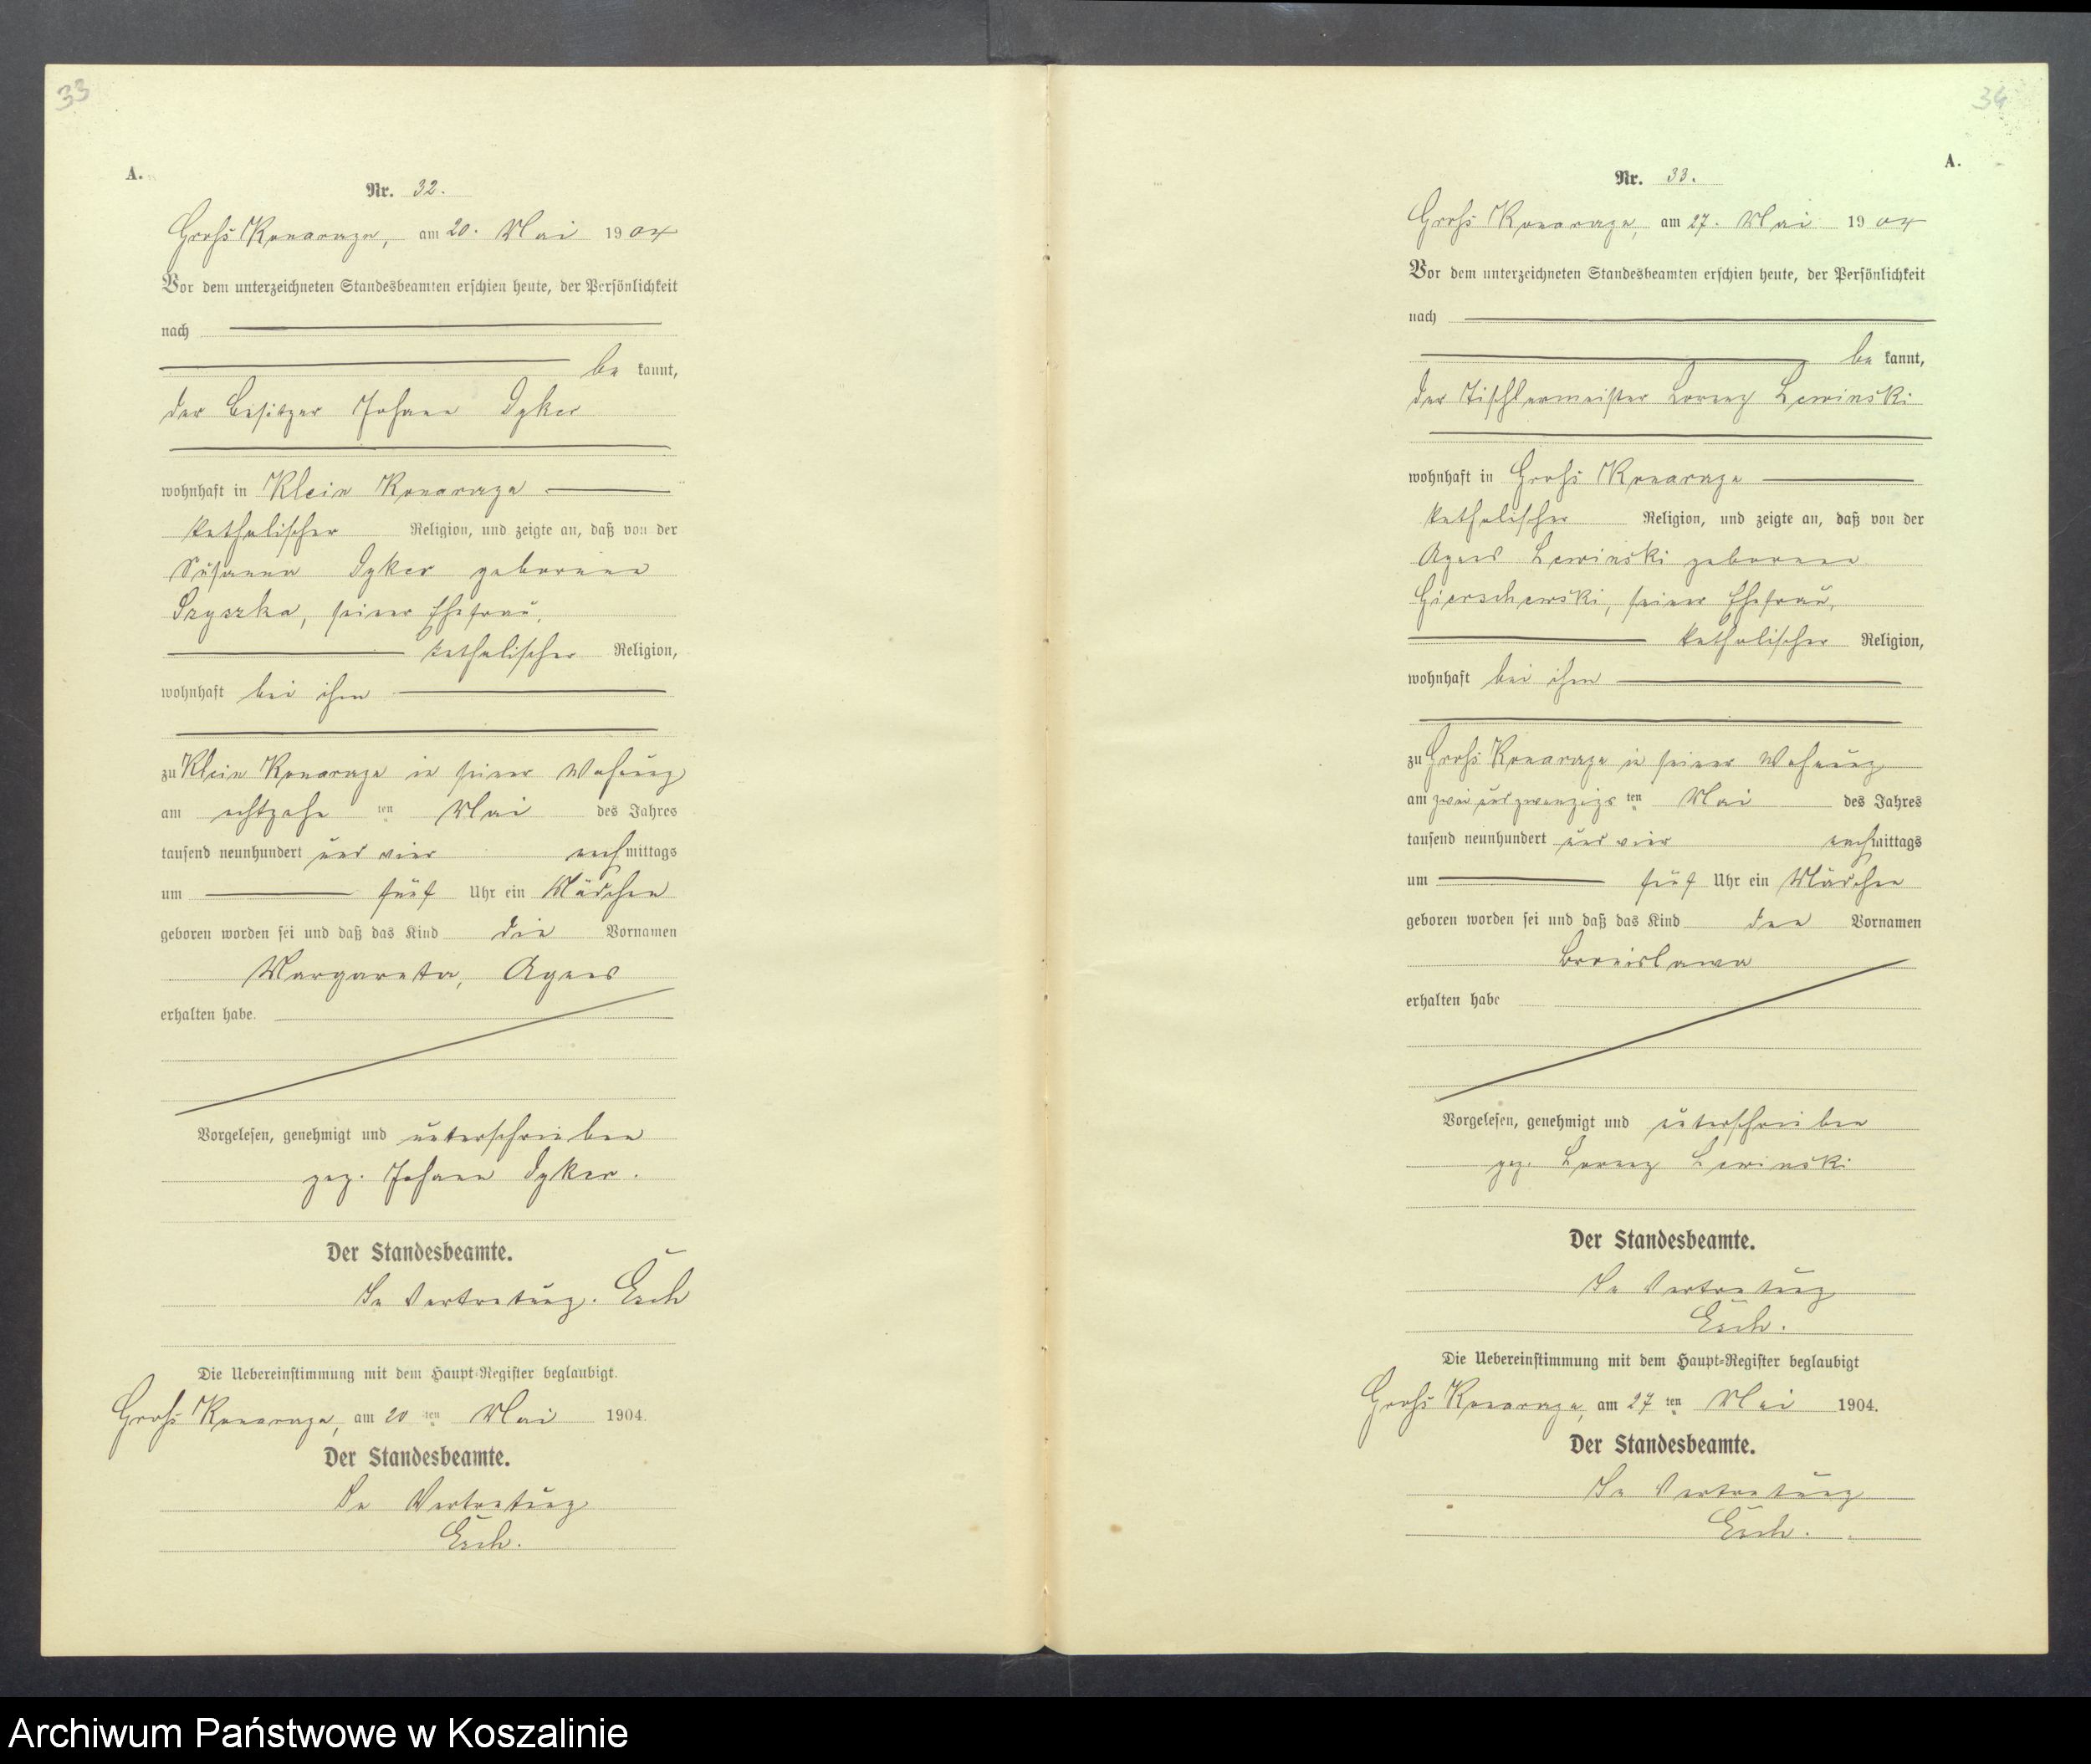 33
A.
Nr. 32.
Groß Konarzyn, am 20. Mai 1904
Vor dem unterzeichneten Standesbeamten erschien heute, der Persönlichkeit
nach
be kannt,
der Besitzer Johann Dyker
wohnhaft in Klein Konarzyn
katholischer Religion, und zeigte an, daß von der
Susanna Dyker geborene
Szyszka, seiner Ehefrau,
katholischer Religion,
wohnhaft bei ihm
zu Klein Konarzyn in seiner Wohnung
am achtzehn ten Mai des Jahres
tausend neunhundert und vier nach mittags
um fünf Uhr ein Mädchen
geboren worden sei und daß das Kind die Vornamen
Margareta, Agnes
erhalten habe.
Vorgelesen, genehmigt und unterschrieben
gez. Johann Dyker.
Der Standesbeamte.
In Vertretung. Esch
Die Uebereinstimmung mit dem Haupt-Register beglaubigt.
Groß Konarzyn, am 20 ten Mai 1904.
Der Standesbeamte.
In Vertretung
Esch.
34
A.
Nr. 33.
Groß Konarzyn, am 27. Mai 1904
Vor dem unterzeichneten Standesbeamten erschien heute, der Persönlichkeit
nach
be kannt,
der Tischlermeister Lorenz Lewinski
wohnhaft in Groß Konarzyn
katholischer Religion, und zeigte an, daß von der
Agnes Lewinski geborene
Gierschewski, seiner Ehefrau,
katholischer Religion,
wohnhaft bei ihm
zu Groß Konarzyn in seiner Wohnung
am zwei und zwanzigs ten Mai des Jahres
tausend neunhundert und vier nach mittags
um fünf Uhr ein Mädchen
geboren worden sei und daß das Kind den Vornamen
Bronislawa
erhalten habe
Vorgelesen, genehmigt und unterschrieben
gez. Lorenz Lewinski
Der Standesbeamte.
In Vertretung
Esch.
Die Uebereinstimmung mit dem Haupt-Register beglaubigt
Groß Konarzyn, am 27 ten Mai 1904.
Der Standesbeamte.
In Vertretung
Esch.
Archiwum Państwowe w Koszalinie